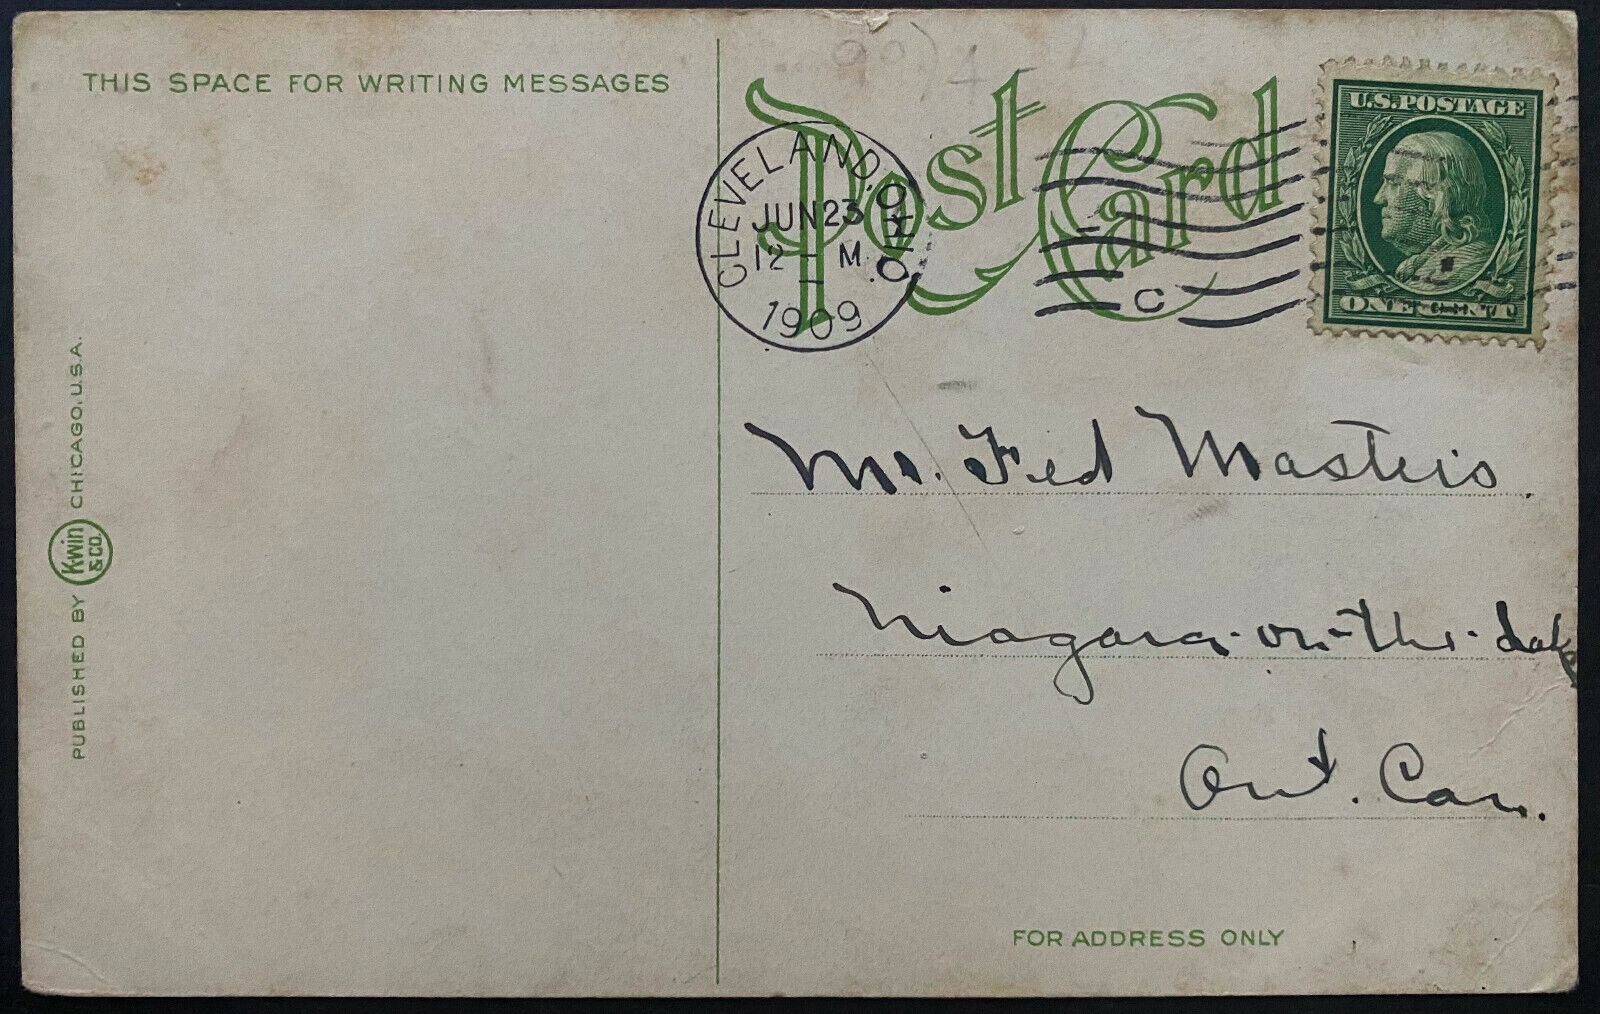 THIS SPACE FOR WRITING MESSAGES
Post Card
CLEVELAND, OHIO.
JUN 23
12 - M.
1909
C
U.S. POSTAGE
ONE CENT
Mr. Fred Masters.
Niagara-on-the-Lake
Ont. Can.
FOR ADDRESS ONLY
PUBLISHED BY K-win & CO. CHICAGO, U.S.A.